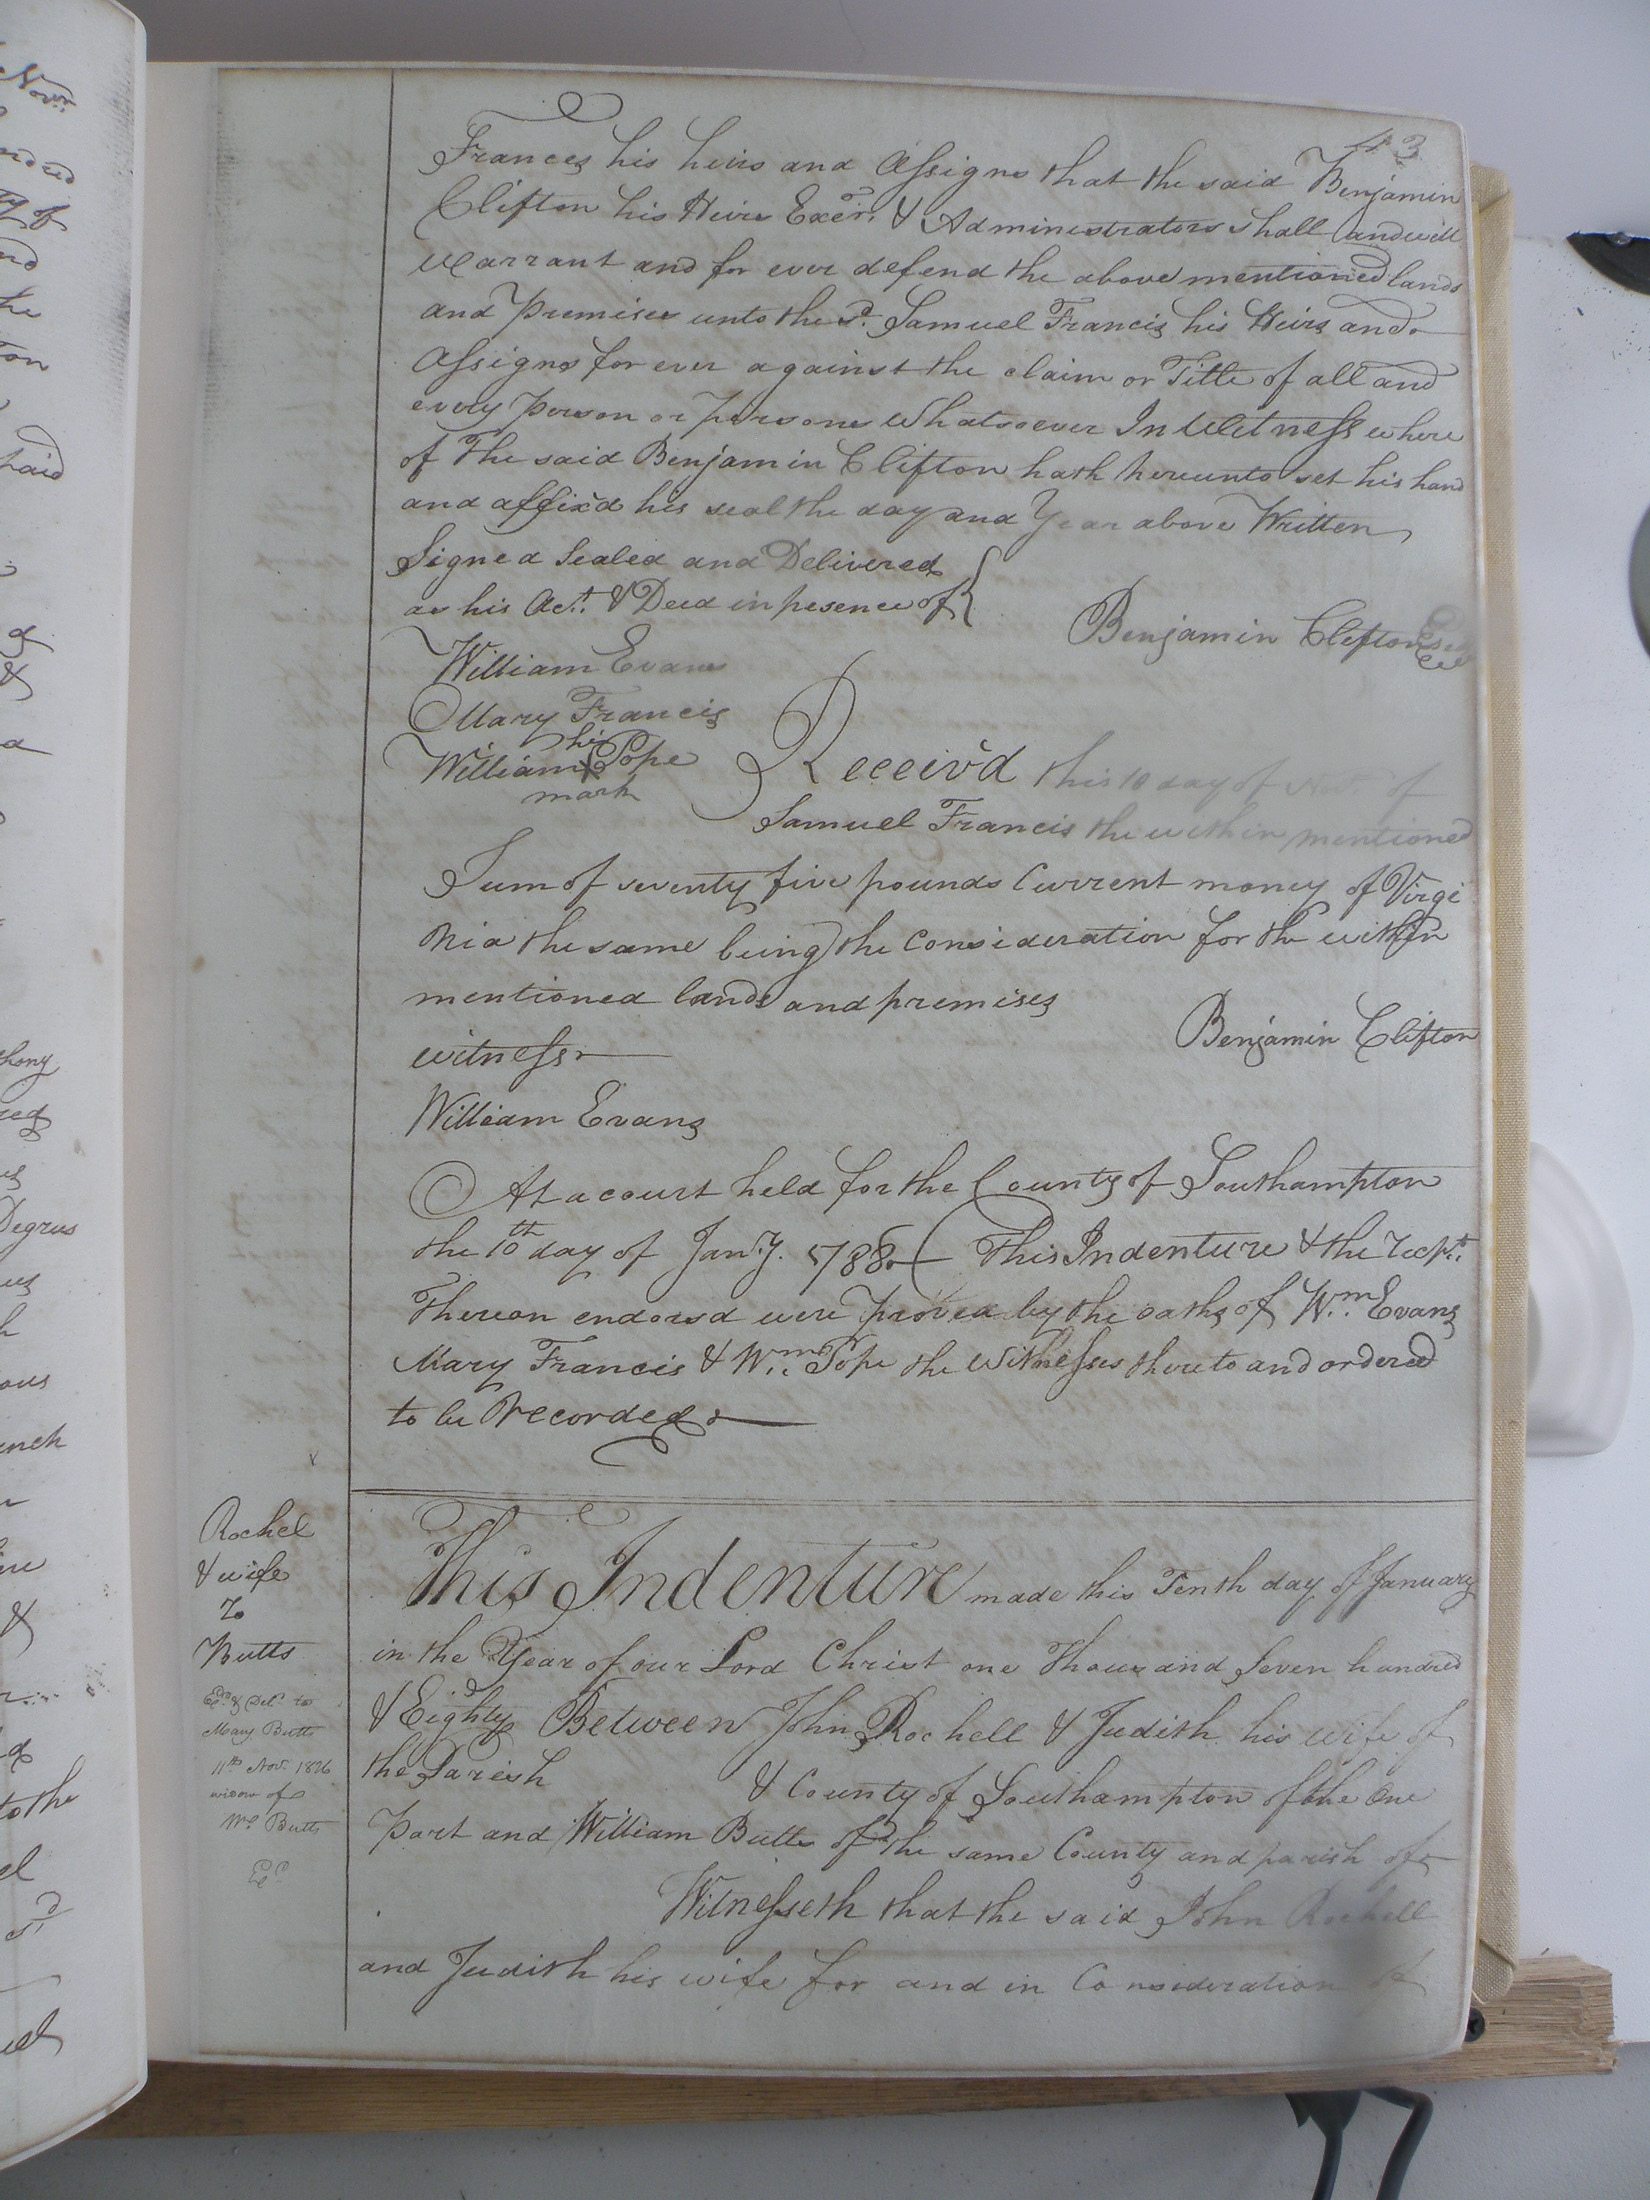 43
Frances his heirs and Assigns that the said Benjamin
Clifton his Heirs Exer. & Administrators shall and will
warrant and for ever defend the above mentioned lands
and Premises unto the sd. Samuel Francis his Heirs and
Assigns for ever against the claim or Title of all and
every Person or Persons Whatsoever In Witness where
of The said Benjamin Clifton hath hereunto set his hand
and affix'd his seal the day and Year above Written
Signed Sealed and Delivered
as his Act. & Deed in presence of
Benjamin Clifton
William Evans
Mary Francis
his
William X Pope
mark
Receiv'd this 10 day of of
Samuel Francis the within mentioned
Sum of seventy five pounds Current money of Virgi
nia the same being the Consideration for the within
mentioned lands and premises
Benjamin Clifton
witness
William Evans
At a court held for the County of Southampton
the 10th day of Jany. 1788 This Indenture & the recpt.
Thereon endorsd were proved by the oaths of Wm. Evans
Mary Francis & Wm. Pope the Witnesses thereto and ordered
to be Recorded
Rochel
& wife
To
Butts
Exd. & Deld. to
Mary Butts
11th Nov. 1826
widow of
Wm. Butts
This Indenture made this Tenth day of January
in the Year of our Lord Christ one Thousand Seven hundred
& Eighty Between John Rochell & Judith his wife of
the Parish & County of Southampton of the One
Part and William Butts of the same County and parish of
Witnesseth that the said John Rochell
and Judith his wife for and in Consideration of